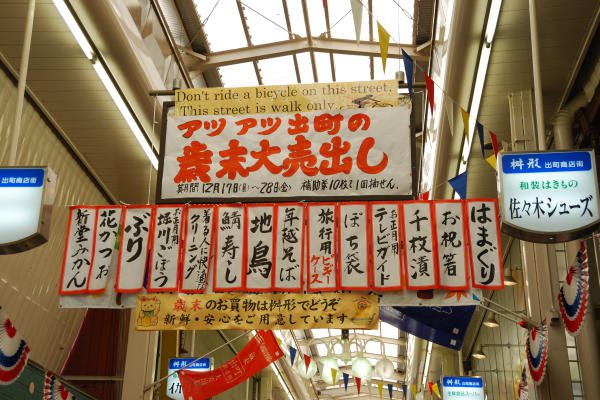 Don't ride a bicycle on this street.
This street is walk only.
アツアツ出町の
歳末大売出し
期間12月17日(月)〜28日(金) 補助券10枚で1回抽せん
はまぐり
お祝箸
千枚漬
お正月用
テレビガイド
ぽち袋
旅行用
ビデオケース
年越そば
地鳥
鯖寿し
着る人に快適な
クリーニング
お正月用
堀川ごぼう
ぶり
花かつお
新堂みかん
歳末のお買物は桝形でどうぞ
新鮮・安心をご用意しています
出町商店街
桝形 出町商店街
和装はきもの
佐々木シューズ
桝形 出町商店街